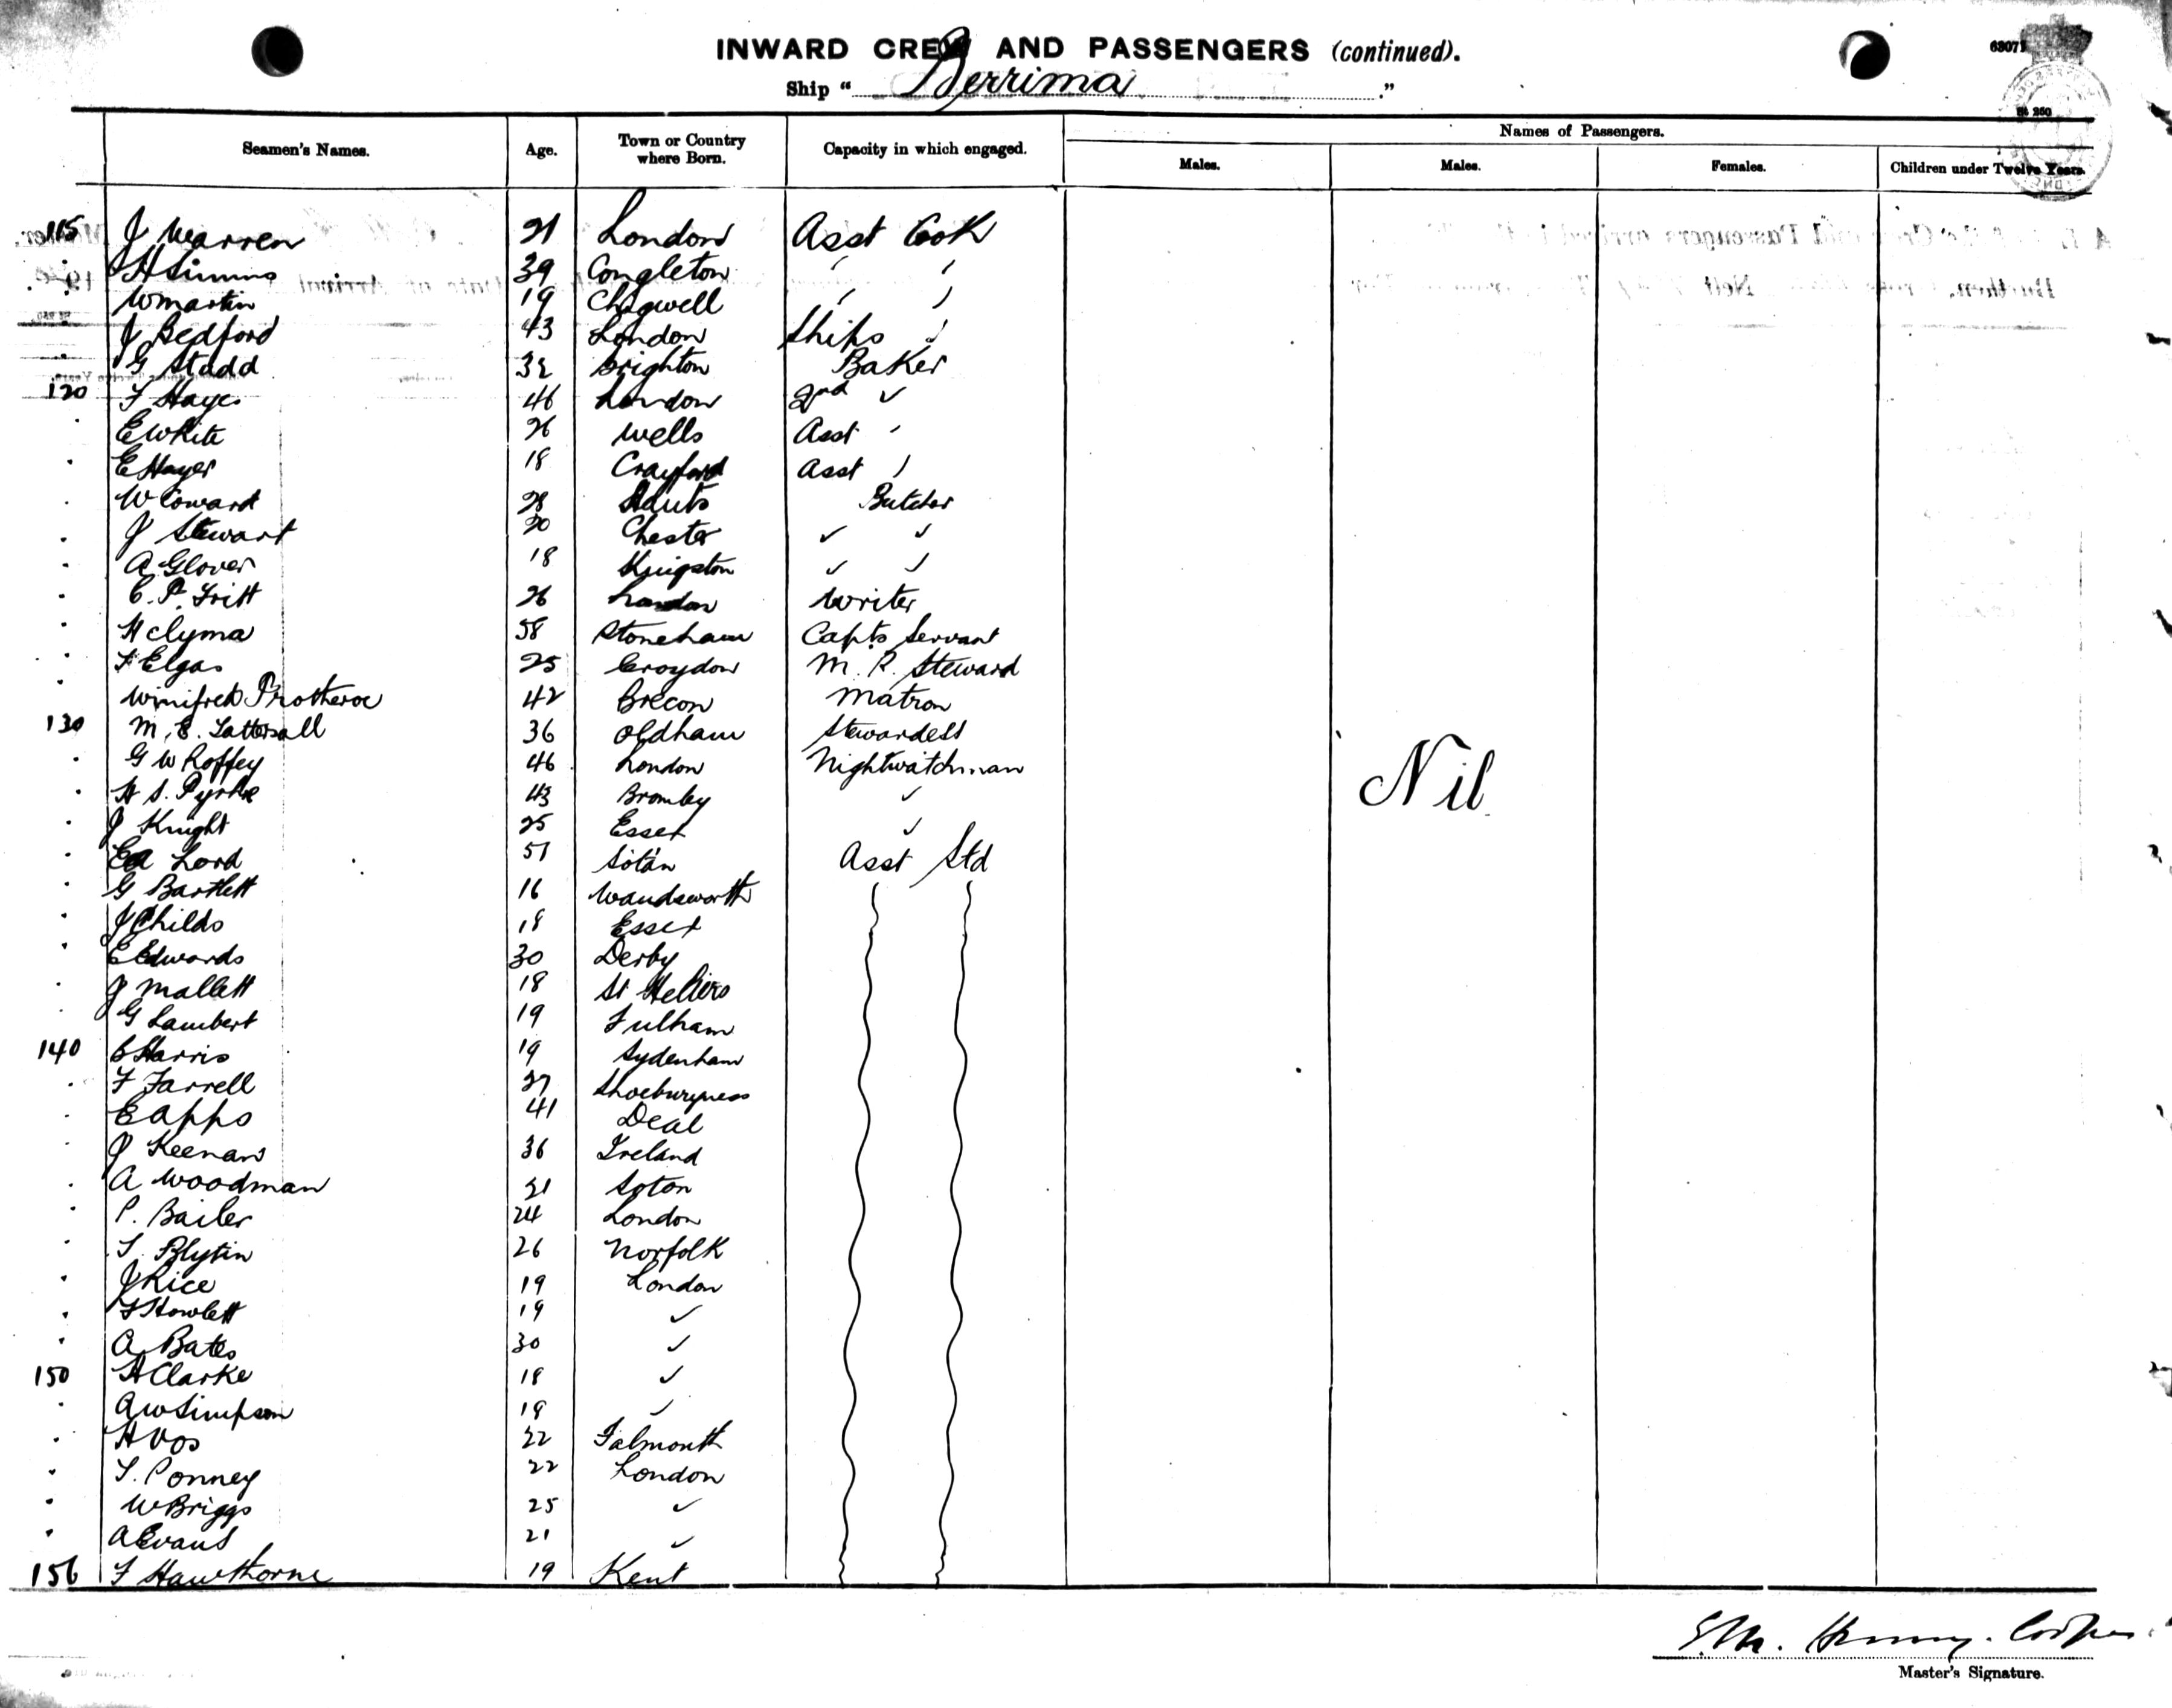 INWARD CREW AND PASSENGERS (continued).
63071
Ship “ Berrima .”
St 250
Names of Passengers.
Seamen's Names. Age. Town or Country where Born. Capacity in which engaged. Males. Males. Females. Children under Twelve Years.
115 J Warren 21 London Asst Cook
H Simms 39 Congleton " "
W Martin 19 Chigwell " "
J Bedford 43 London Ships "
G Studd 32 Brighton Baker
120 F Hayes 46 London 2nd "
E White 26 Wells Asst "
E Hayer 18 Crayford Asst "
W Coward 28 Butcher
J Stewart 20 Chester " "
A Glover 18 Kingston " "
C. P. Fritt 26 London Writer
H Clyma 58 Stoneham Capts Servant
F Elgas 25 Croydon M. R. Steward
Winifred Protheroe 42 Brecon Matron
130 M. E. Tattersall 36 Oldham Stewardess
G W Roffey 46 London Nightwatchman
H S. 43 Bromley "
J Knight 25 Essex "
Lord 51 Soton Asst Std
G Bartlett 16 Wandsworth
J Childs 18 Essex
E Edwards 30 Derby
J Mallett 18 St Heliers
G Lambert 19 Fulham
140 C Harris 19 Sydenham
F Farrell 27 Shoeburyness
E Apps 41 Deal
J Keenan 36 Ireland
A Woodman 21 Soton
P. Bailer 24 London
S. Blytin 26 Norfolk
J Rice 19 London
F Howlett 19 "
A Bates 30 "
150 H Clarke 18 "
A W Simpson 19 "
H Vos 22 Falmouth
S. Ponney 22 London
W Briggs 25 "
A Evans 21 "
156 F Hawthorne 19 Kent
Nil
Master's Signature.